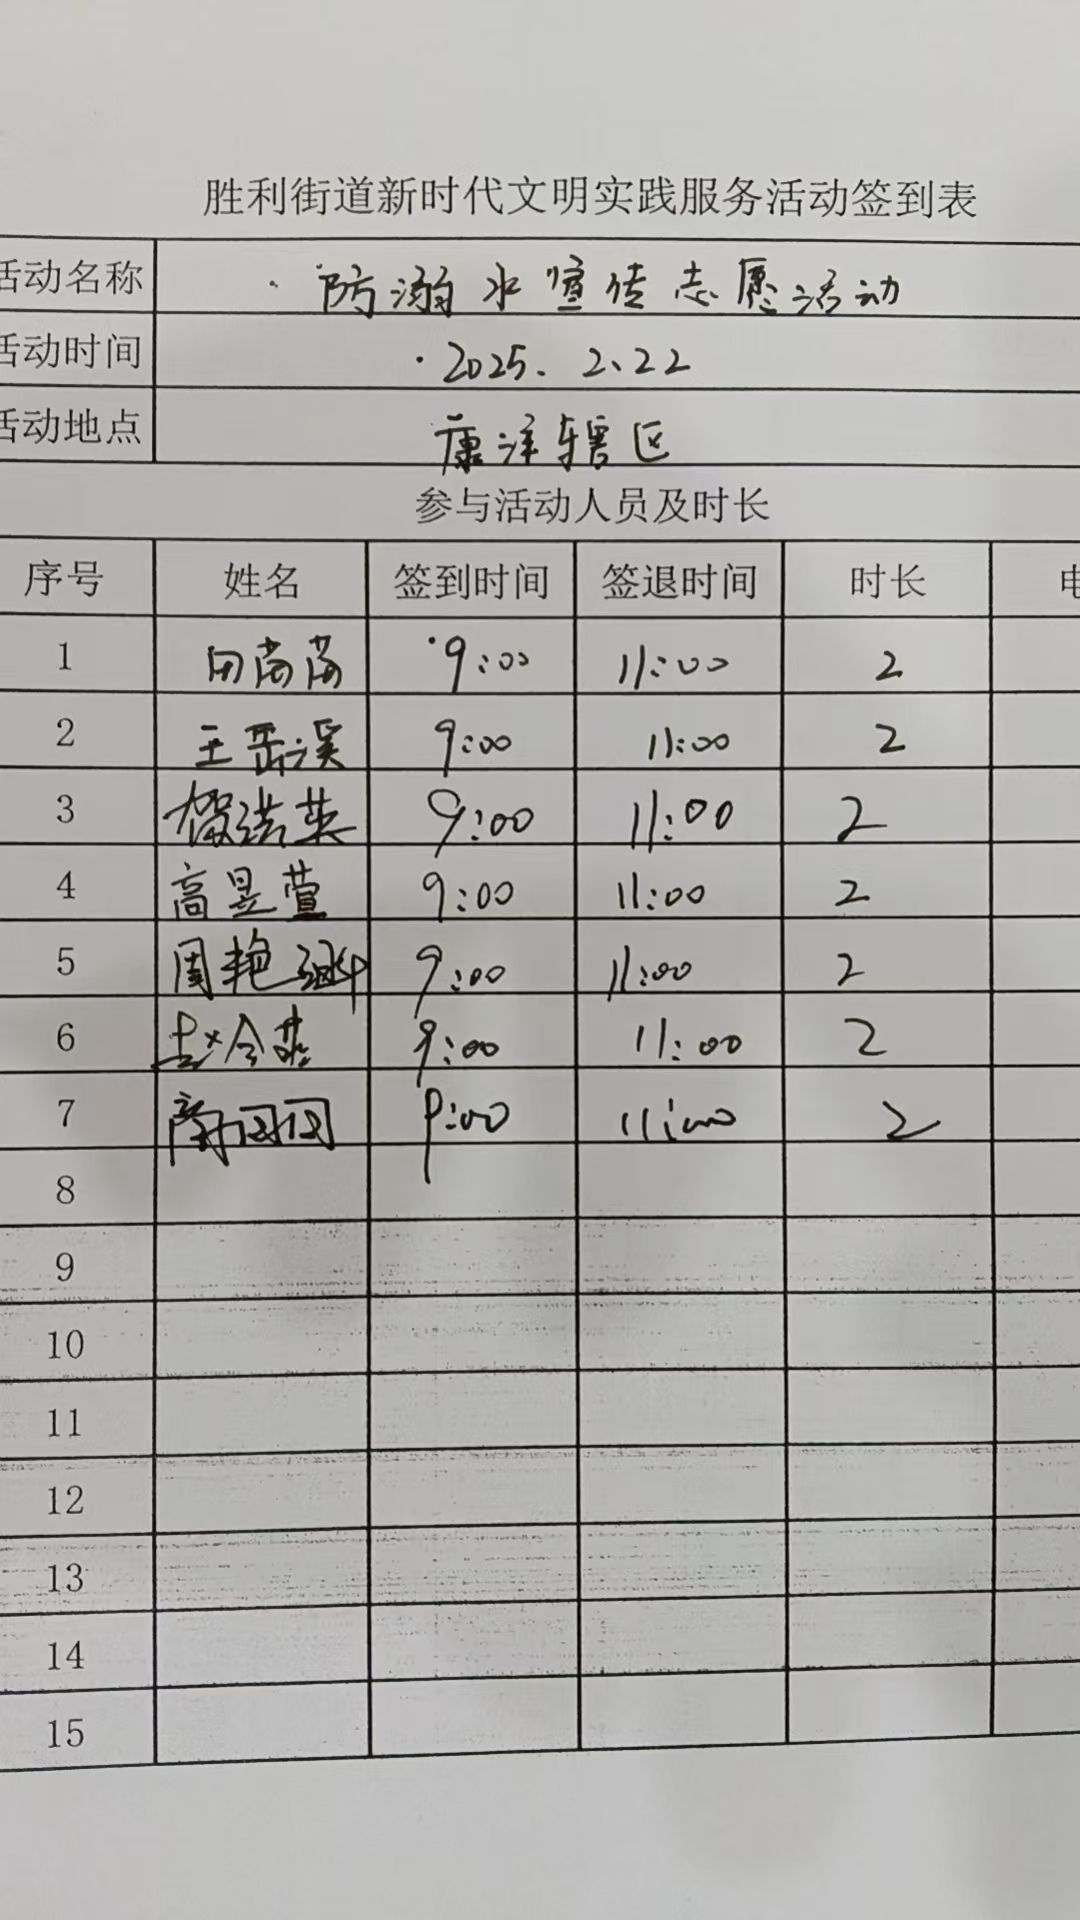 胜利街道新时代文明实践服务活动签到表
活动名称 防溺水宣传志愿活动
活动时间 2025.2.22
活动地点 康洋辖区
参与活动人员及时长
序号 姓名 签到时间 签退时间 时长 电
1 田苗苗 9:00 11:00 2
2 王岳溪 9:00 11:00 2
3 洪英 9:00 11:00 2
4 高昱萱 9:00 11:00 2
5 周艳 9:00 11:00 2
6 赵令燕 9:00 11:00 2
7 9:00 11:00 2
8
9
10
11
12
13
14
15